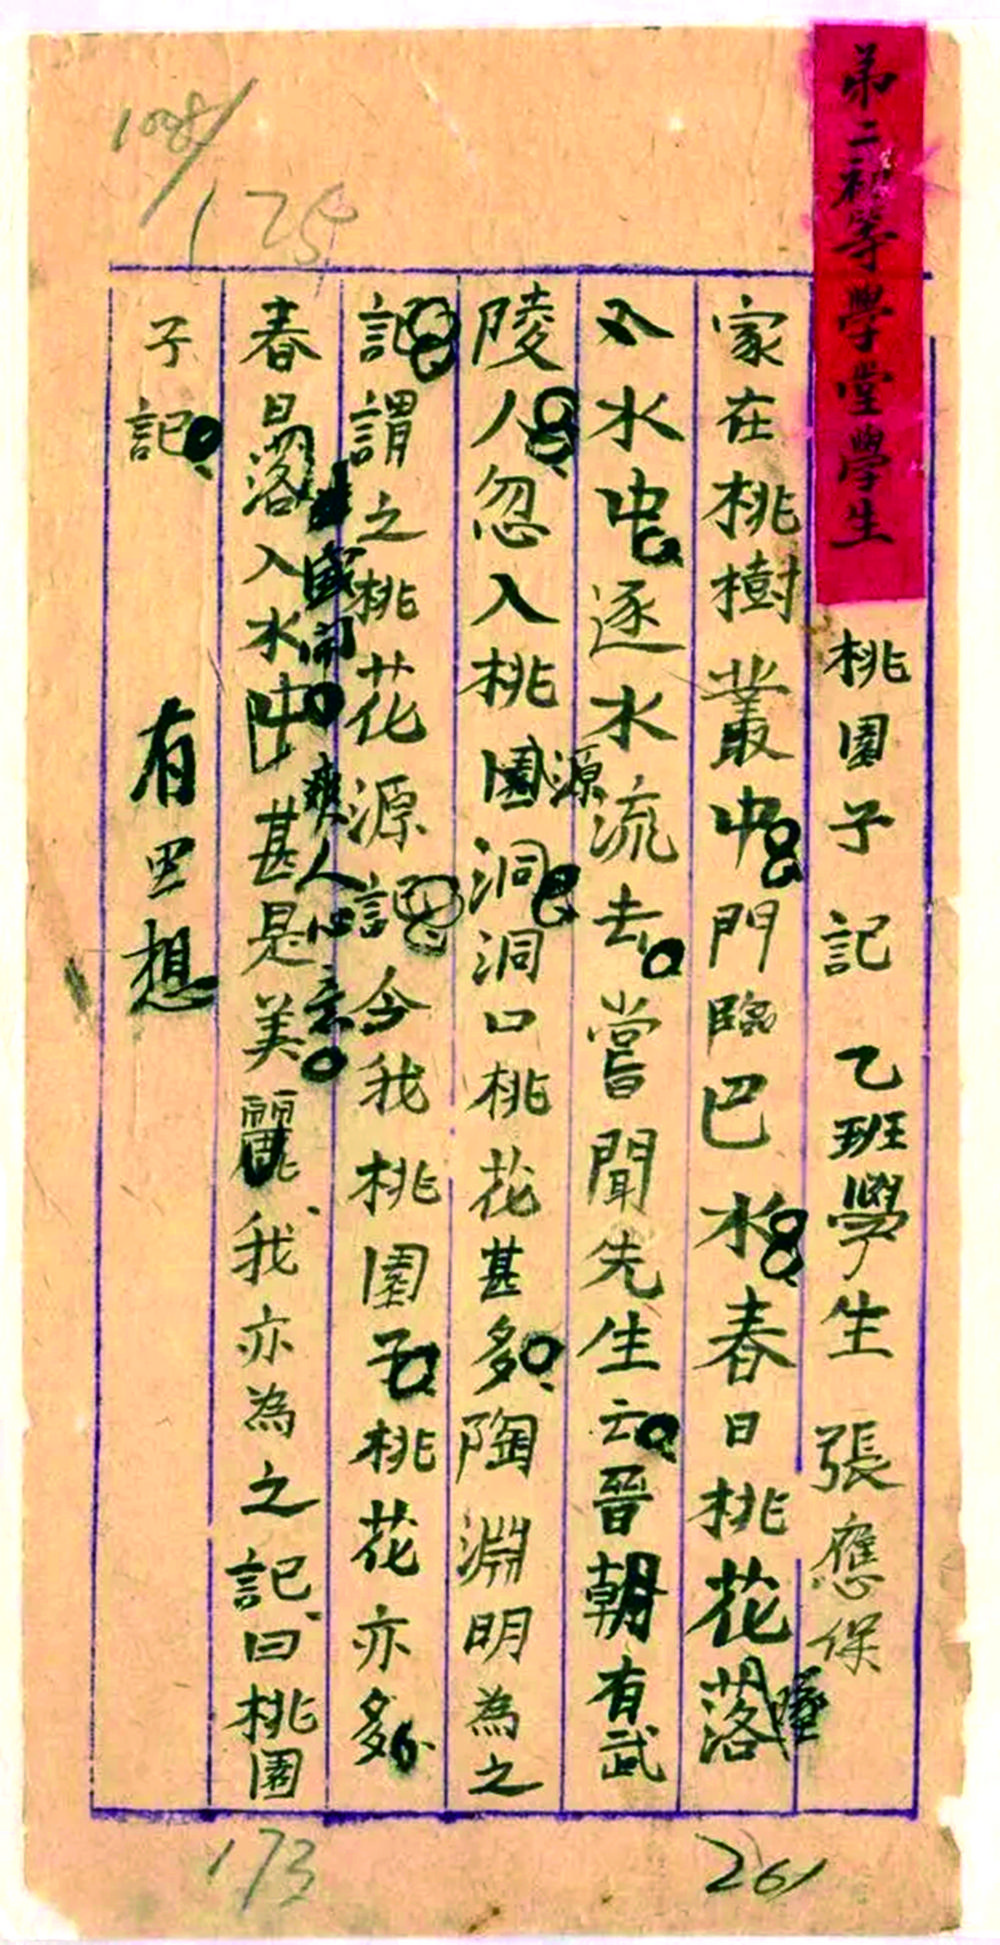 弟二初等學堂學生
桃園子記 乙班學生 張應保
家在桃樹叢中門臨巴水春日桃花落
墜
入水中逐水流去嘗聞先生云晉朝有武
陵人忽入桃園洞洞口桃花甚多陶淵明為之
源
記謂之桃花源記今我桃園子桃花亦多
春日落入水中甚是美麗我亦為之記曰桃園
盛開爽人心意
子記
有思想
1008/
175
173
261